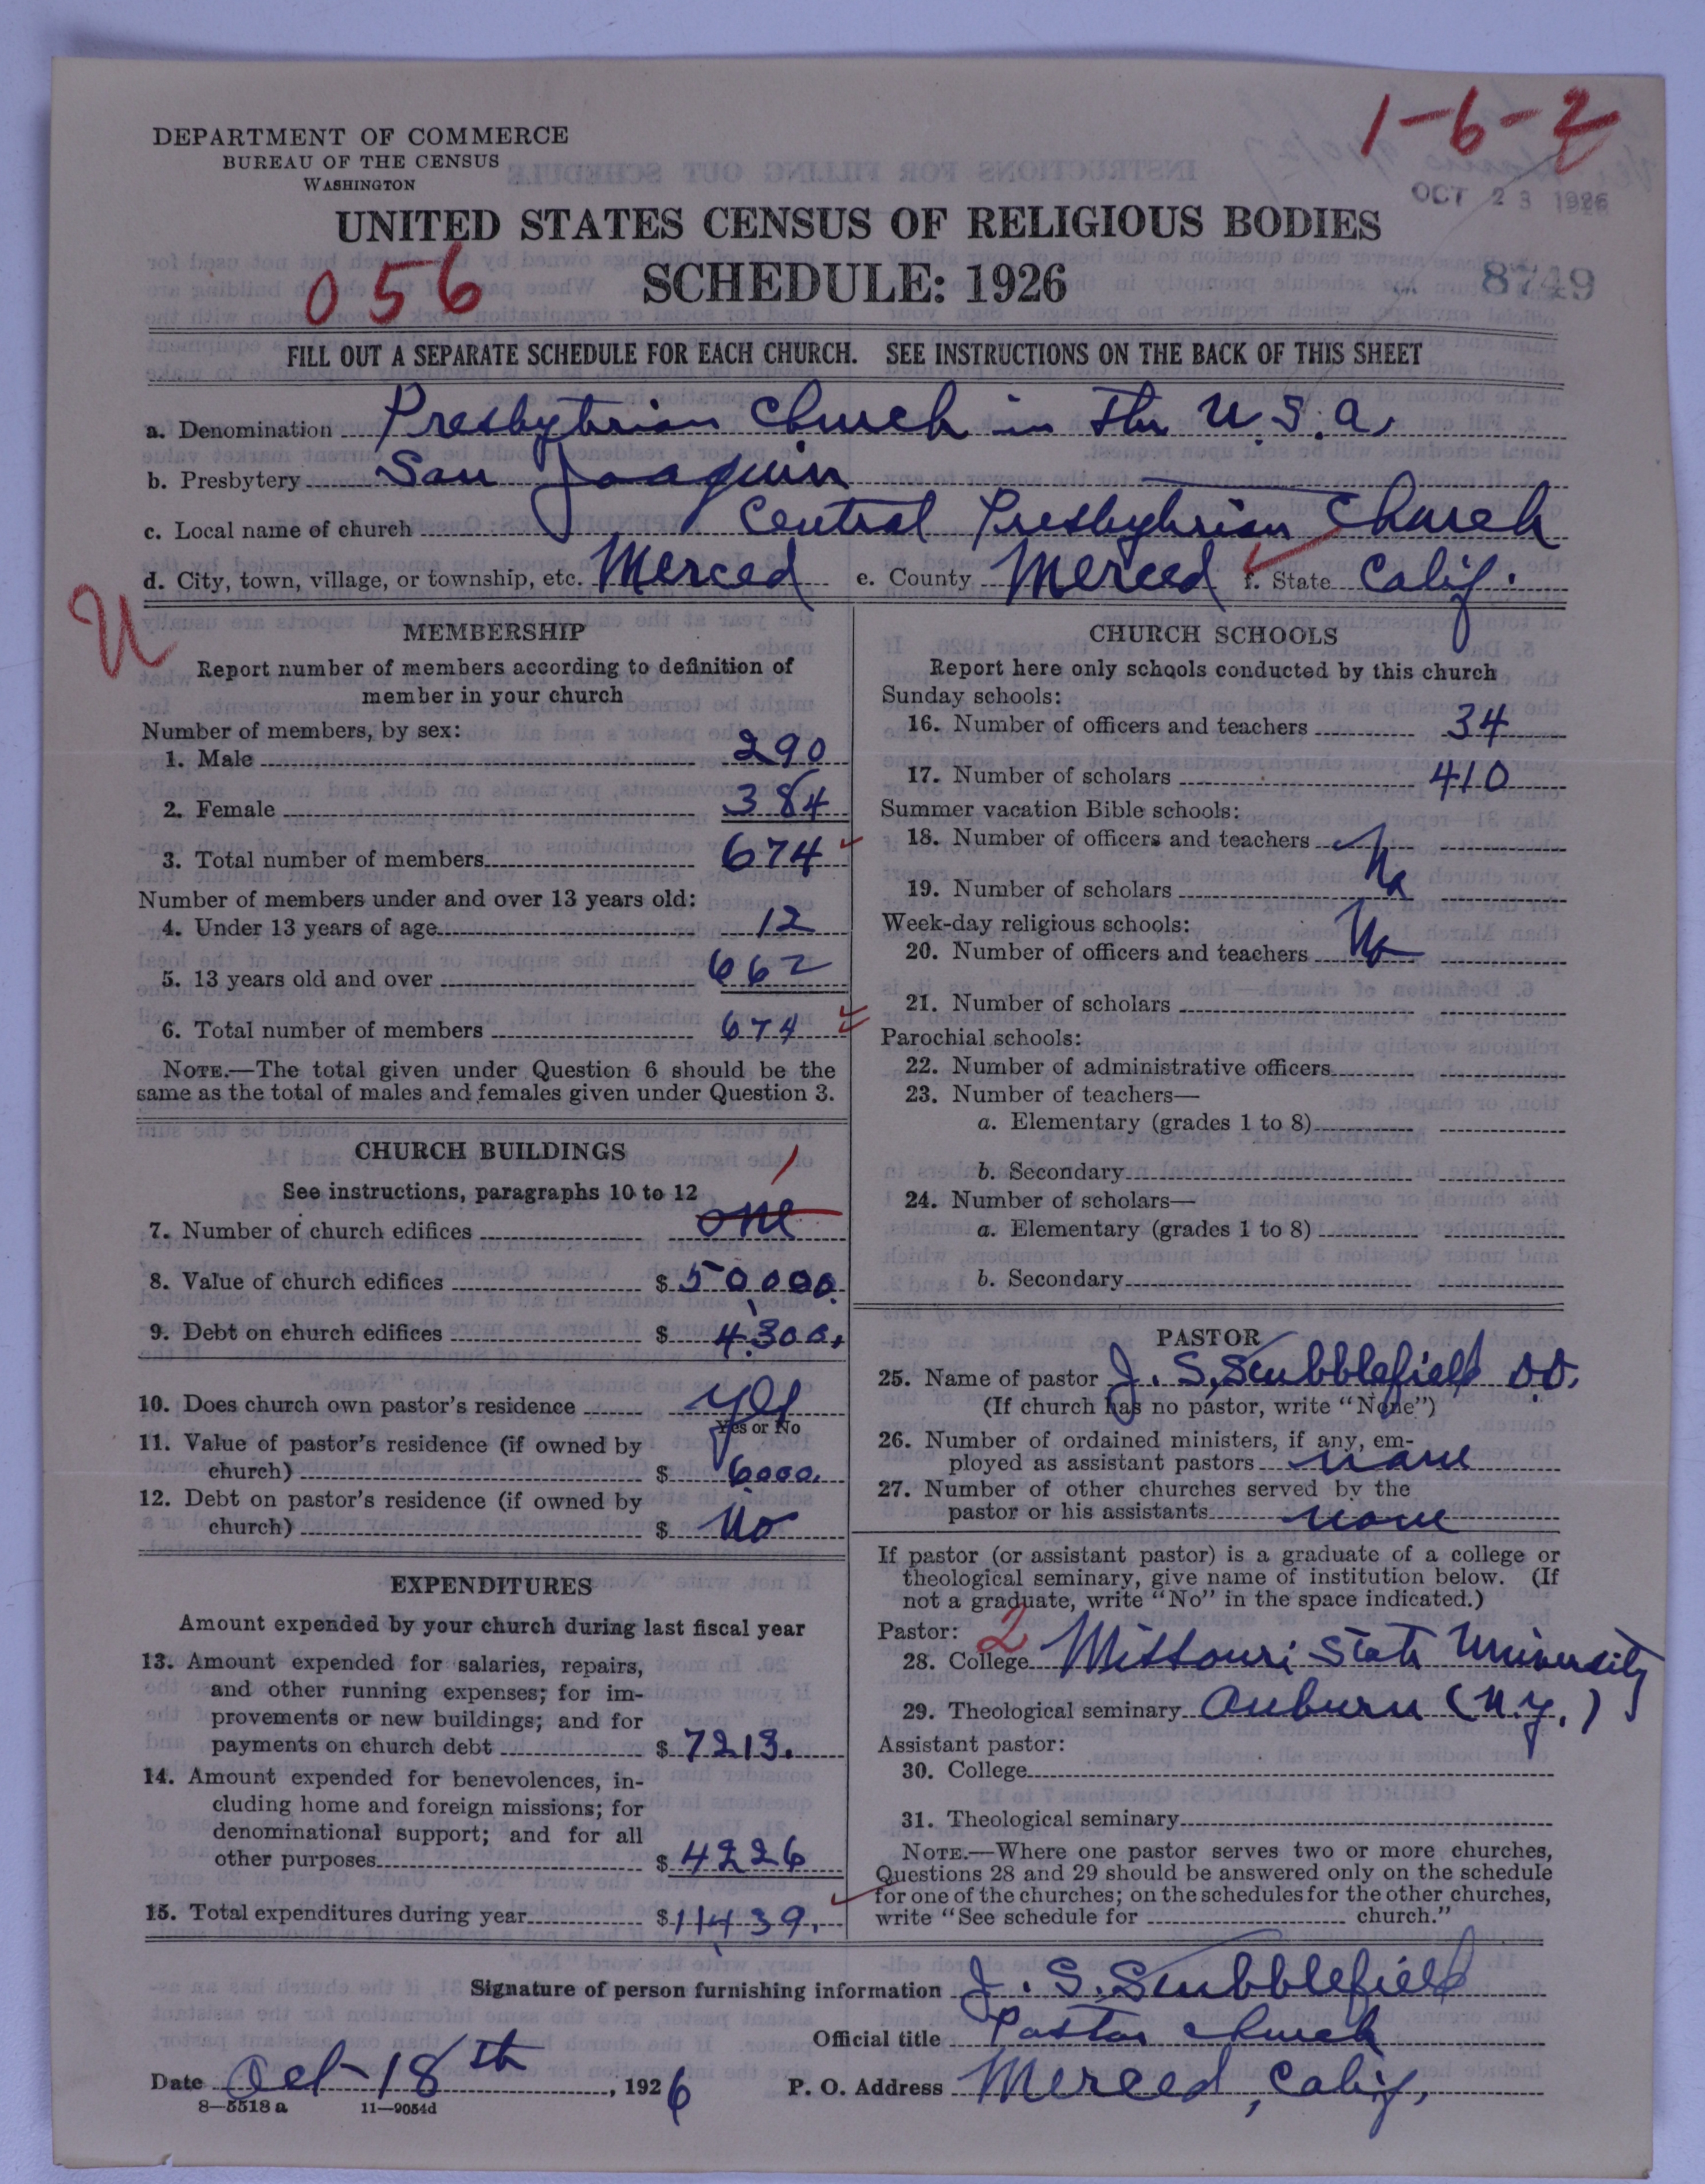 1-6-2
DEPARTMENT OF COMMERCE
BUREAU OF THE CENSUS
WASHINGTON
OCT 23 1926
UNITED STATES CENSUS OF RELIGIOUS BODIES
056
SCHEDULE: 1926
8749
FILL OUT A SEPARATE SCHEDULE FOR EACH CHURCH. SEE INSTRUCTIONS ON THE BACK OF THIS SHEET
a. Denomination Presbytrian Church in the U.S.A.
b. Presbytery San Joaquin
c. Local name of church Central Presbytrian Church
d. City, town, village, or township, etc. Merced e. County Merced f. State Calif.
U
MEMBERSHIP
Report number of members according to definition of
member in your church
Number of members, by sex:
1. Male 290
2. Female 384
3. Total number of members 674
Number of members under and over 13 years old:
4. Under 13 years of age 12
5. 13 years old and over 662
6. Total number of members 674
NOTE.—The total given under Question 6 should be the
same as the total of males and females given under Question 3.
CHURCH BUILDINGS
See instructions, paragraphs 10 to 12
1
7. Number of church edifices one
8. Value of church edifices $ 50,000.
9. Debt on church edifices $ 4300.
10. Does church own pastor's residence yes
Yes or No
11. Value of pastor's residence (if owned by
church) $ 6000.
12. Debt on pastor's residence (if owned by
church) $ No
EXPENDITURES
Amount expended by your church during last fiscal year
13. Amount expended for salaries, repairs,
and other running expenses; for im-
provements or new buildings; and for
payments on church debt $ 7213.
14. Amount expended for benevolences, in-
cluding home and foreign missions; for
denominational support; and for all
other purposes $ 4226
15. Total expenditures during year $ 11,439.
CHURCH SCHOOLS
Report here only schools conducted by this church
Sunday schools:
16. Number of officers and teachers 34
17. Number of scholars 410
Summer vacation Bible schools:
18. Number of officers and teachers No
19. Number of scholars
Week-day religious schools:
20. Number of officers and teachers No
21. Number of scholars
Parochial schools:
22. Number of administrative officers
23. Number of teachers—
a. Elementary (grades 1 to 8)
b. Secondary
24. Number of scholars—
a. Elementary (grades 1 to 8)
b. Secondary
PASTOR
25. Name of pastor J. S. Stubblefield D.D.
(If church has no pastor, write "None")
26. Number of ordained ministers, if any, em-
ployed as assistant pastors none
27. Number of other churches served by the
pastor or his assistants none
If pastor (or assistant pastor) is a graduate of a college or
theological seminary, give name of institution below. (If
not a graduate, write "No" in the space indicated.)
Pastor: 2
28. College Missouri State University
29. Theological seminary Auburn (N.Y.)
Assistant pastor:
30. College
31. Theological seminary
NOTE.—Where one pastor serves two or more churches,
Questions 28 and 29 should be answered only on the schedule
for one of the churches; on the schedules for the other churches,
write "See schedule for church."
Signature of person furnishing information J. S. Stubblefield
Official title Pastor Church
Date Oct 18th, 1926 P. O. Address Merced, Calif.
8—5518 a 11—9054d